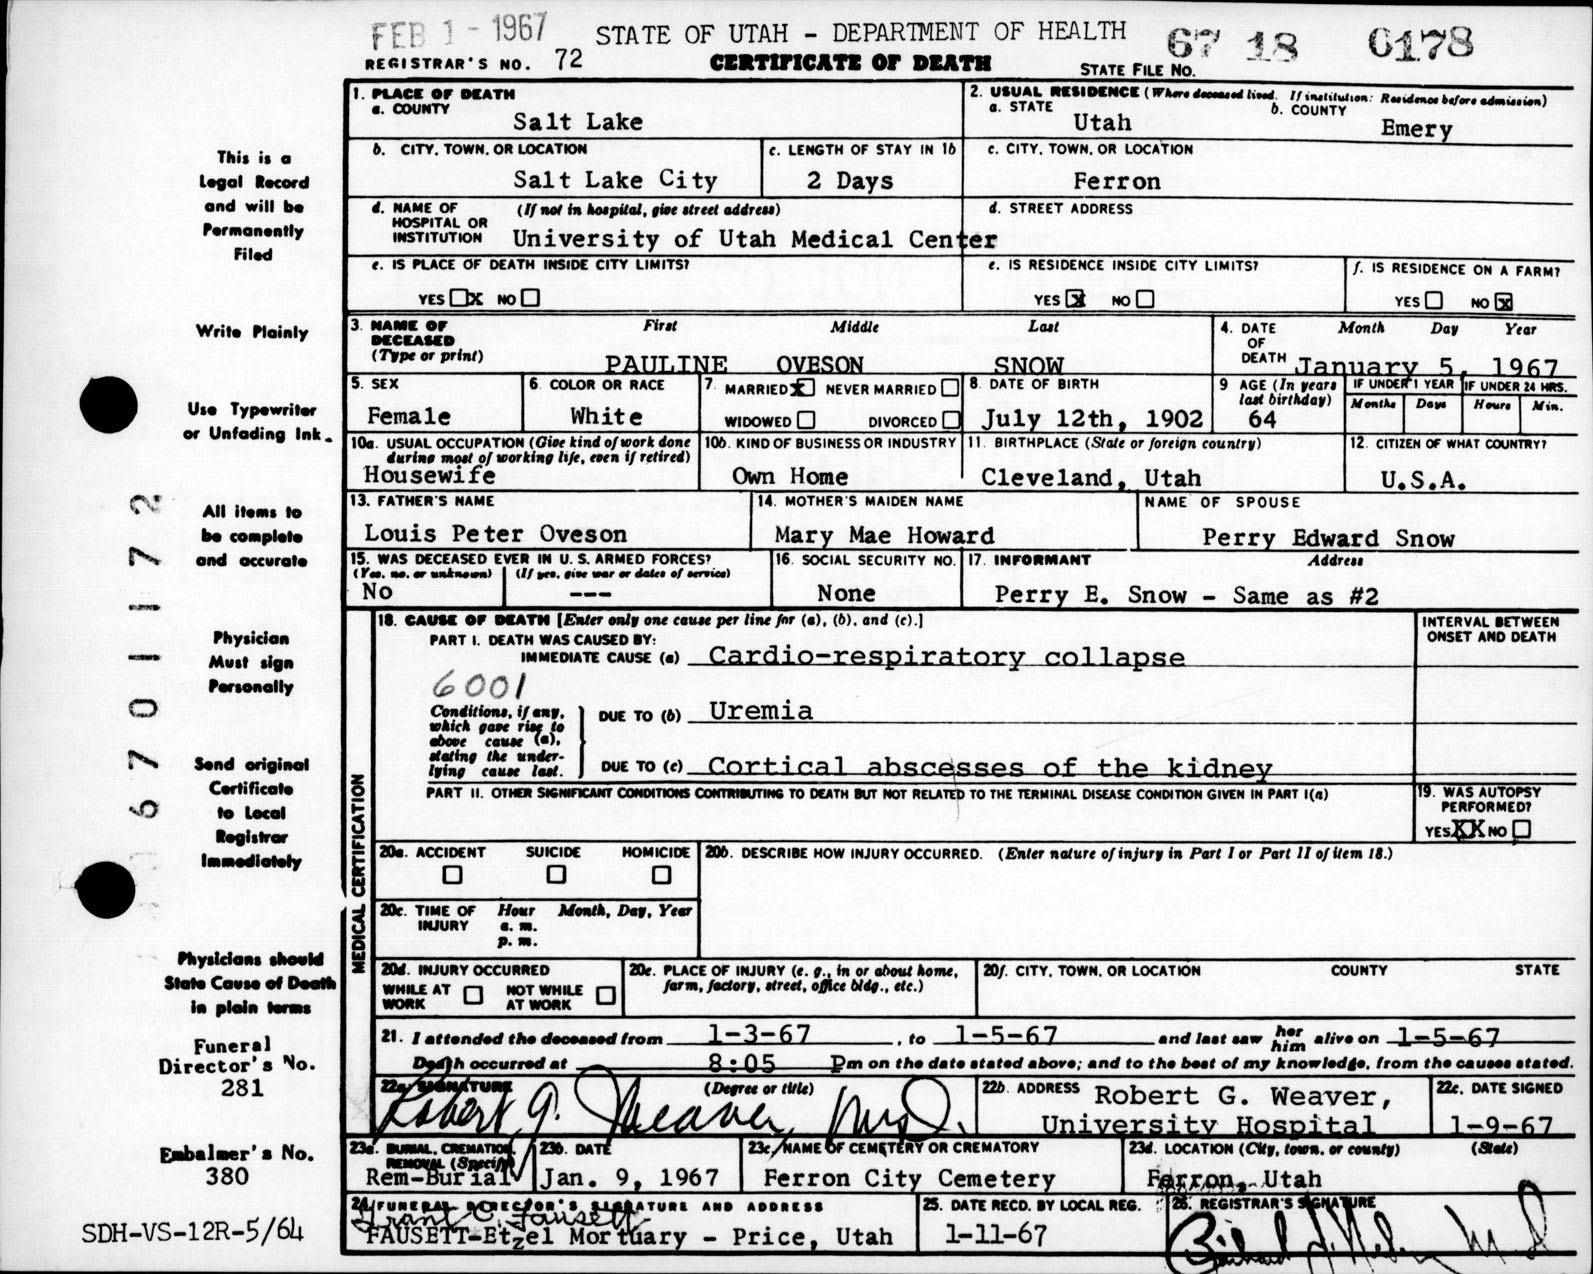 FEB 1 - 1967 STATE OF UTAH - DEPARTMENT OF HEALTH 67 18 0178
REGISTRAR'S NO. 72 CERTIFICATE OF DEATH STATE FILE NO.
1. PLACE OF DEATH
a. COUNTY
Salt Lake
2. USUAL RESIDENCE (Where deceased lived. If institution: Residence before admission)
a. STATE b. COUNTY
Utah Emery
b. CITY, TOWN, OR LOCATION
Salt Lake City
c. LENGTH OF STAY IN 1b
2 Days
c. CITY, TOWN, OR LOCATION
Ferron
d. NAME OF HOSPITAL OR INSTITUTION (If not in hospital, give street address)
University of Utah Medical Center
d. STREET ADDRESS
e. IS PLACE OF DEATH INSIDE CITY LIMITS?
YES X NO
e. IS RESIDENCE INSIDE CITY LIMITS?
YES X NO
f. IS RESIDENCE ON A FARM?
YES NO X
3. NAME OF DECEASED (Type or print)
First Middle Last
PAULINE OVESON SNOW
4. DATE OF DEATH Month Day Year
January 5, 1967
5. SEX
Female
6. COLOR OR RACE
White
7. MARRIED X NEVER MARRIED
WIDOWED DIVORCED
8. DATE OF BIRTH
July 12th, 1902
9 AGE (In years last birthday)
64
IF UNDER 1 YEAR IF UNDER 24 HRS.
Months Days Hours Min.
10a. USUAL OCCUPATION (Give kind of work done during most of working life, even if retired)
Housewife
10b. KIND OF BUSINESS OR INDUSTRY
Own Home
11. BIRTHPLACE (State or foreign country)
Cleveland, Utah
12. CITIZEN OF WHAT COUNTRY?
U.S.A.
13. FATHER'S NAME
Louis Peter Oveson
14. MOTHER'S MAIDEN NAME
Mary Mae Howard
NAME OF SPOUSE
Perry Edward Snow
15. WAS DECEASED EVER IN U. S. ARMED FORCES?
(Yes, no, or unknown) (If yes, give war or dates of service)
No ---
16. SOCIAL SECURITY NO.
None
17. INFORMANT Address
Perry E. Snow - Same as #2
MEDICAL CERTIFICATION
18. CAUSE OF DEATH [Enter only one cause per line for (a), (b), and (c).]
INTERVAL BETWEEN ONSET AND DEATH
PART I. DEATH WAS CAUSED BY:
IMMEDIATE CAUSE (a) Cardio-respiratory collapse
6001
Conditions, if any, which gave rise to above cause (a), stating the underlying cause last.
DUE TO (b) Uremia
DUE TO (c) Cortical abscesses of the kidney
PART II. OTHER SIGNIFICANT CONDITIONS CONTRIBUTING TO DEATH BUT NOT RELATED TO THE TERMINAL DISEASE CONDITION GIVEN IN PART I(a)
19. WAS AUTOPSY PERFORMED?
YES XX NO
20a. ACCIDENT SUICIDE HOMICIDE
20b. DESCRIBE HOW INJURY OCCURRED. (Enter nature of injury in Part I or Part II of item 18.)
20c. TIME OF INJURY Hour Month, Day, Year
a. m.
p. m.
20d. INJURY OCCURRED
WHILE AT WORK NOT WHILE AT WORK
20e. PLACE OF INJURY (e. g., in or about home, farm, factory, street, office bldg., etc.)
20f. CITY, TOWN, OR LOCATION COUNTY STATE
21. I attended the deceased from 1-3-67, to 1-5-67 and last saw her him alive on 1-5-67
Death occurred at 8:05 Pm on the date stated above; and to the best of my knowledge, from the causes stated.
22a. SIGNATURE (Degree or title)
Robert G. Weaver, M.D.
22b. ADDRESS Robert G. Weaver,
University Hospital
22c. DATE SIGNED
1-9-67
23a. BURIAL, CREMATION, REMOVAL (Specify)
Rem-Burial
23b. DATE
Jan. 9, 1967
23c. NAME OF CEMETERY OR CREMATORY
Ferron City Cemetery
23d. LOCATION (City, town, or county) (State)
Ferron, Utah
24. FUNERAL DIRECTOR'S SIGNATURE AND ADDRESS
Grant C. Fausett
FAUSETT-Etzel Mortuary - Price, Utah
25. DATE RECD. BY LOCAL REG.
1-11-67
26. REGISTRAR'S SIGNATURE
This is a
Legal Record
and will be
Permanently
Filed
Write Plainly
Use Typewriter
or Unfading Ink.
All items to
be complete
and accurate
Physician
Must sign
Personally
Send original
Certificate
to Local
Registrar
Immediately
Physicians should
State Cause of Death
in plain terms
Funeral
Director's No.
281
Embalmer's No.
380
SDH-VS-12R-5/64
67011172